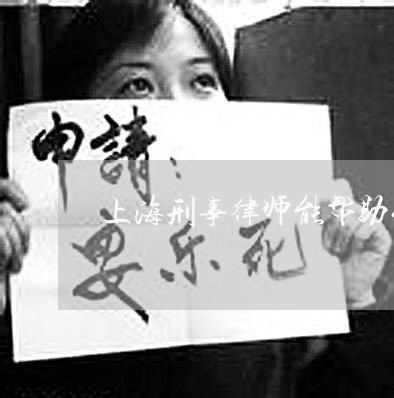 申請：
上海刑事律师能帮助
安乐死